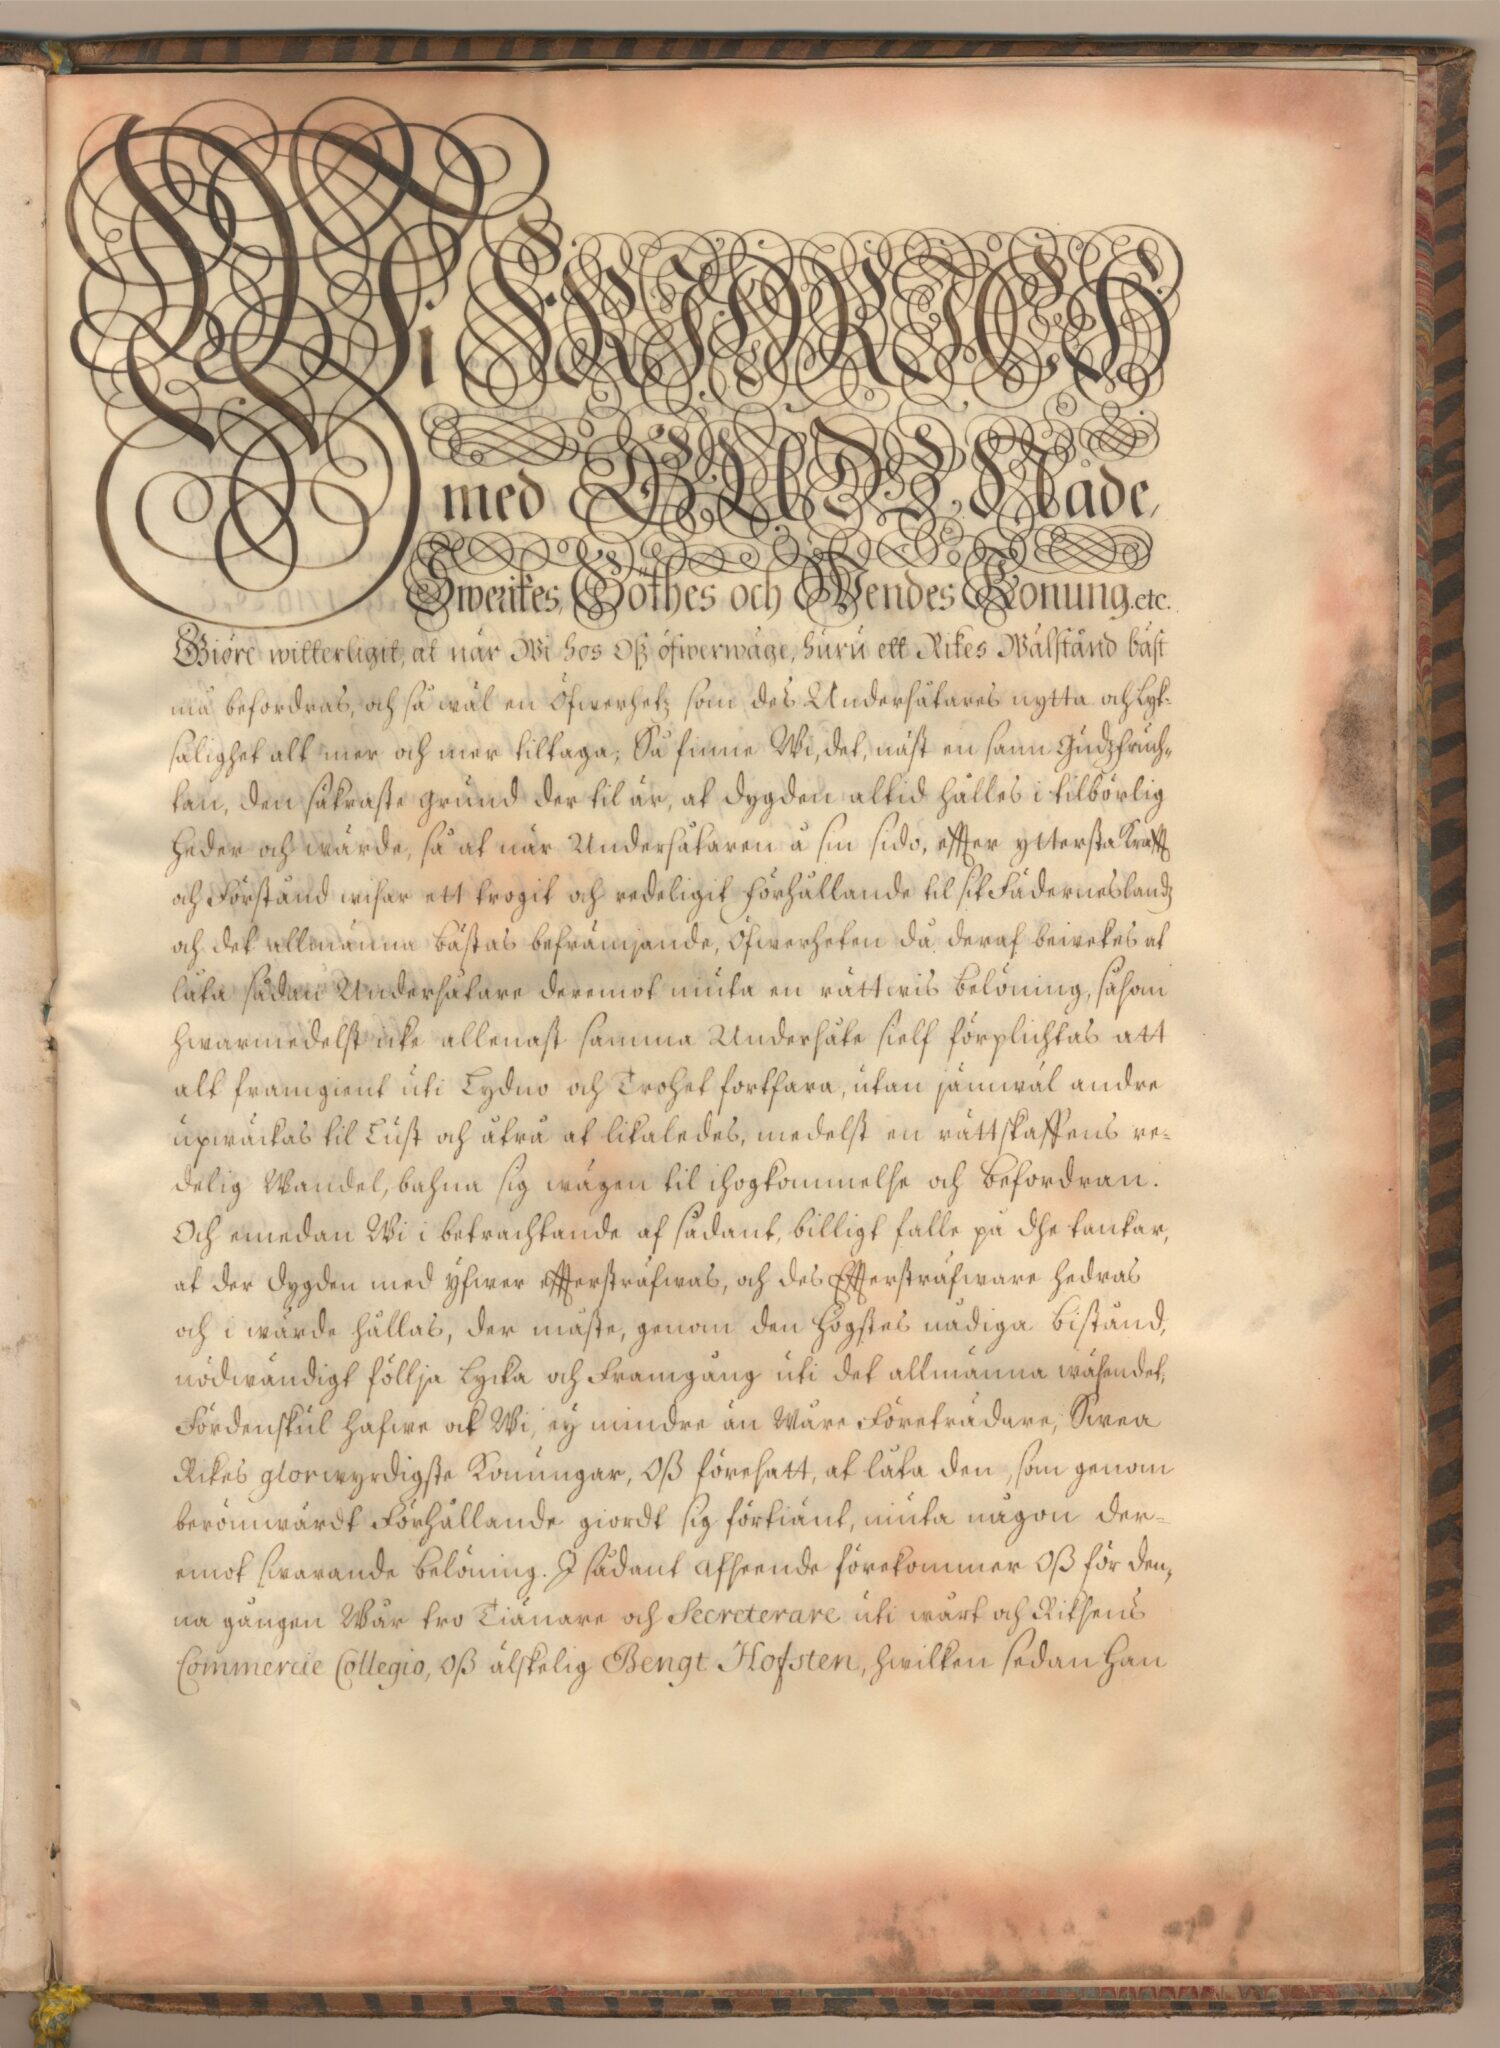 Wi FRIDRICH
med GUDZ Nåde,
Sweriķes, Göthes och Wendes Konung.etc.
Giöre witterligit, at när Wi hos Oß öfwerwäge, huru ett Rikes Wälstånd bäst
må befordras, och så wäl en Öfwerhetz som des Undersåtares nytta och Lyk-
salighet alt mer och mer tiltaga; Så finne Wi, det, näst en sann Gudzfruch-
tan, den säkraste grund der til är, at dygden altid hålles i tilbörlig
heder och wärde, så at när Undersåtaren å sin sido, effter yttersta Krafft
och Förstånd wisar ett trogit och redeligit förhållande til sit Fäderneslandz
och det allmänna bästas befrämjande, Öfwerheten då deraf bewekes at
låta sådan Undersåtare deremot niuta en rättwis belöning, såsom
hwarmedelst icke allenast samma Undersåte sielf förplichtas att
alt framgient uti Lydno och Trohet fortfara, utan jämwäl andre
upwäckas til Lust och åtrå at likaledes, medelst en rättskaffens re-
delig Wandel, bahna sig wägen til ihogkommelse och befordran.
Och emedan Wi i betrachtande af sådant, billigt falle på dhe tankar,
at der dygden med yfwer effterstråfwas, och des Effterstråfware hedras
och i wärde hållas, der måste, genom den Högstes nådiga bistånd,
nödwändigt föllja Lycka och Framgång uti det allmänna wäsendet;
Fördenskul hafwe ock Wi, ey mindre än Wåre Företrädare, Swea
Rikes glorwyrdigste Konungar, Oß föresatt, at låta den, som genom
berömwärdt Förhållande giordt sig förtiänt, niuta någon der-
emot swarande belöning. I sådant afseende förekommer Oß för den-
na gången Wår tro Tiänare och Secreterare uti wårt och Riksens
Commercie Collegio, Oß älskelig Bengt Hofsten, hwilken sedan Han